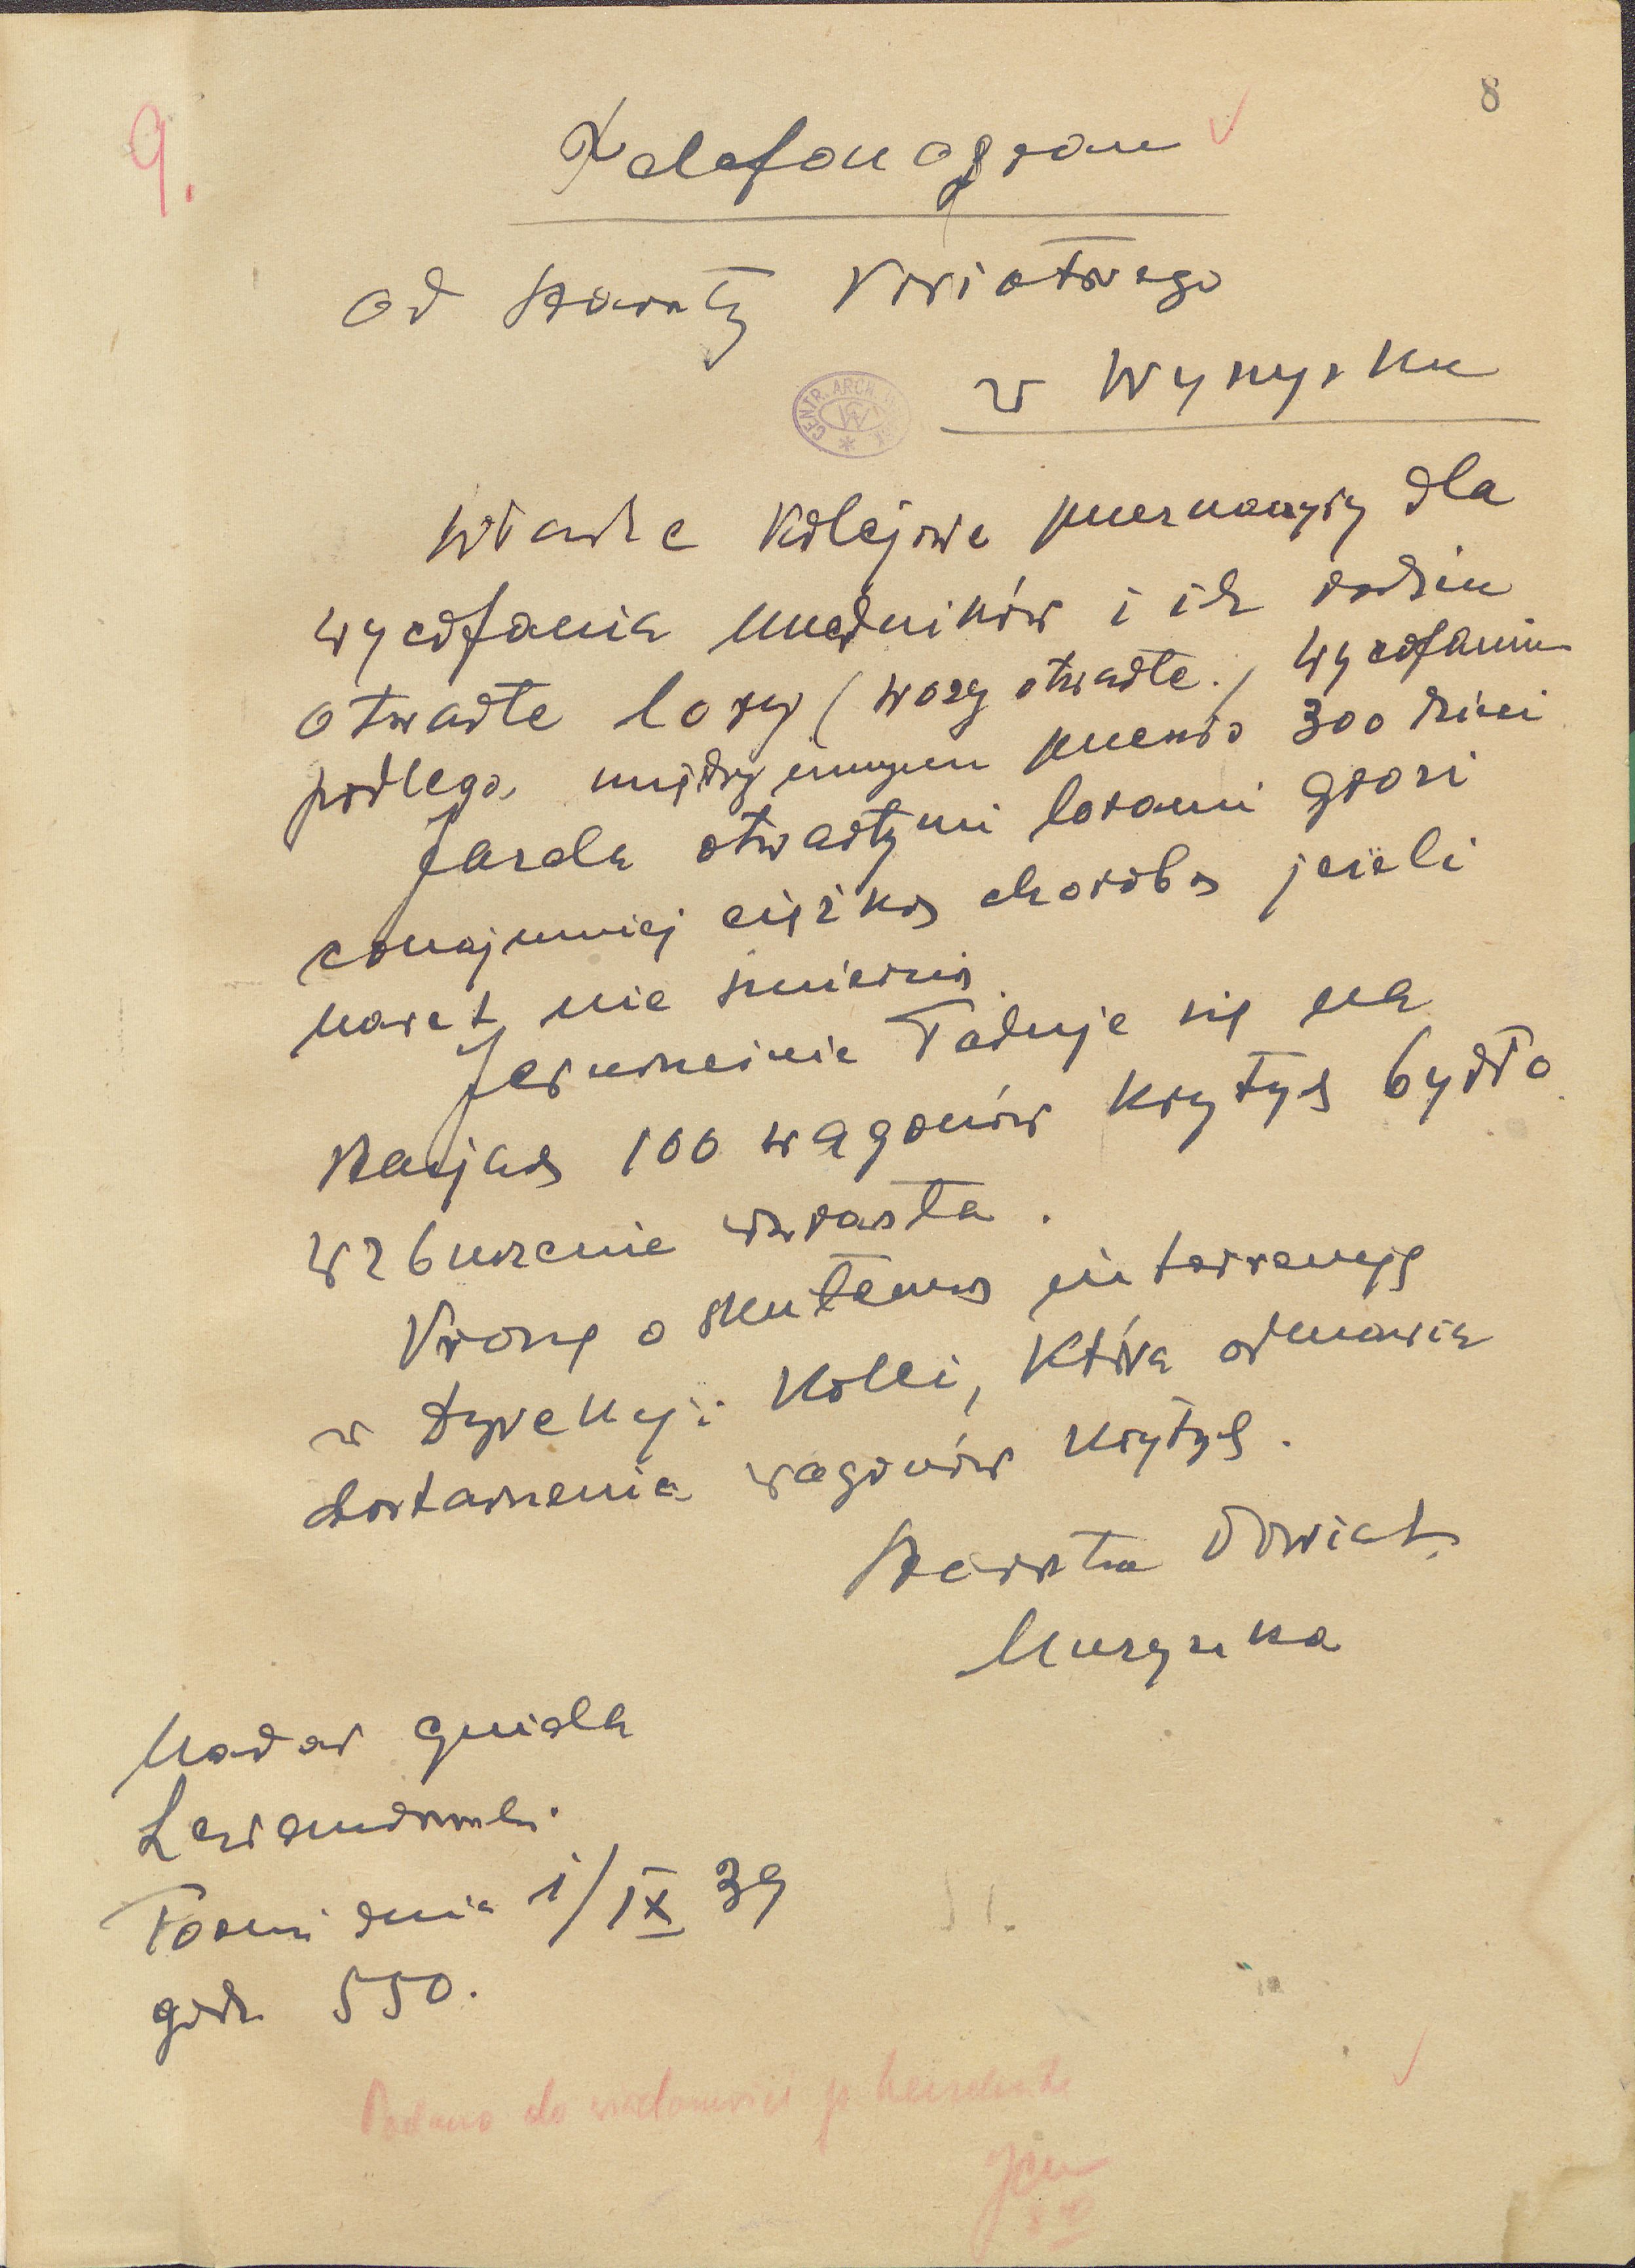 8
9.
Telefonogram
Od Starosty Powiatowego
w Wyrzysku
CENTR. ARCH. WOJSK
Władze Kolejowe przeznaczyły dla
wycofania urzędników i ich rodzin
otwarte lory (wozy otwarte./ Wycofaniu
podlega międzyinnymi przeszło 300 dzieci
Jazda otwartymi lorami grozi
conajmniej ciężką chorobą jeżeli
nawet nie śmiercią.
Jednocześnie ładuje się na
stacjach 100 wagonów krytych bydło.
Wzburzenie wzrasta.
Proszę o skuteczną interwencję
w Dyrekcji Kolei, która odmawia
dostarczenia wagonów krytych.
Starosta Powiat.
Muzyczka
Nadał
Toruń dnia 1/IX 39
godz 550.
Podano do wiadomości p.